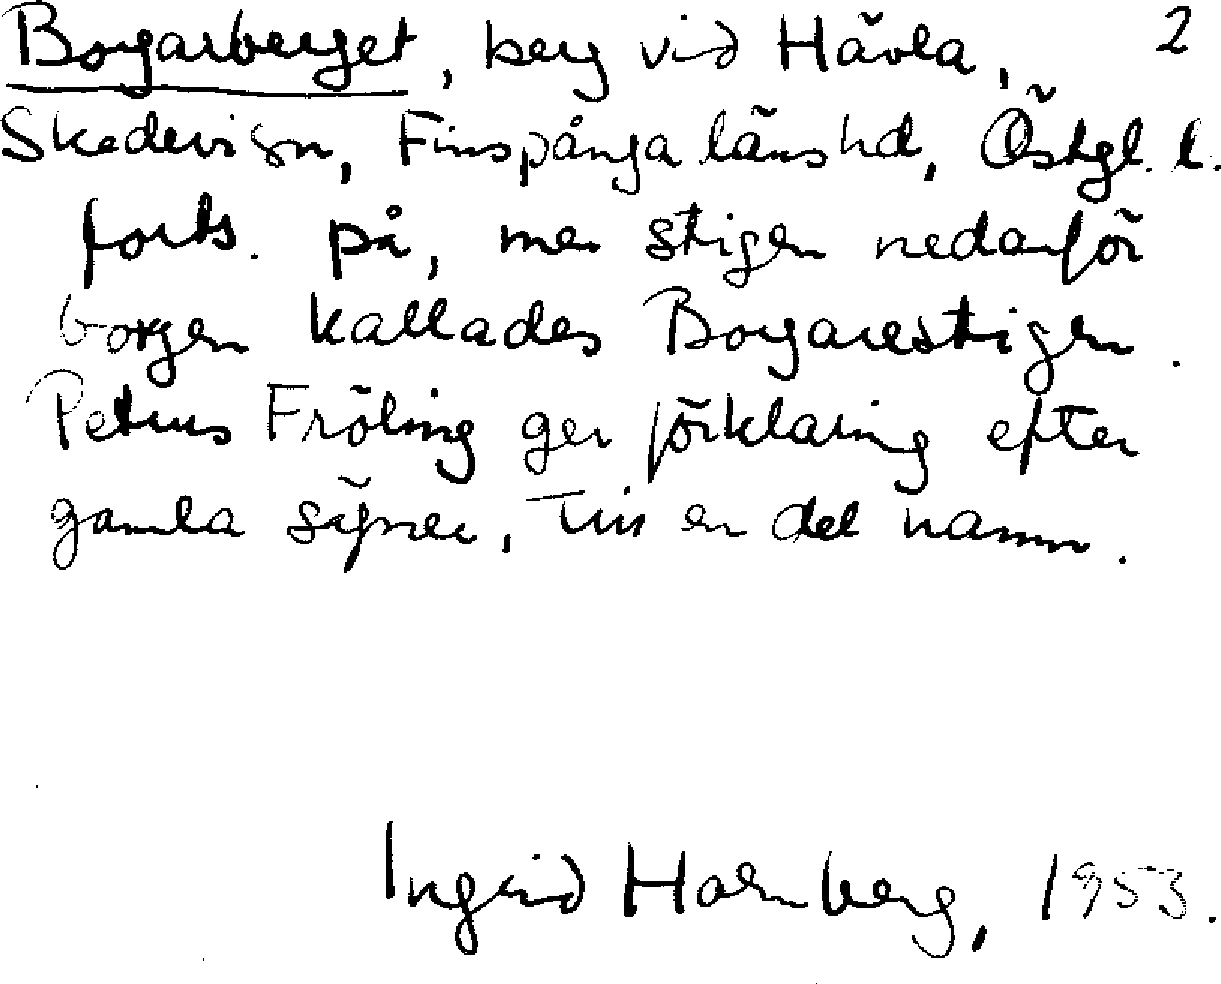 Borgarberget, berg vid Hävla, 2
Skedevi sn, Finspånga länshd, Östgl. l.
forts. på, men stigen nedanför
borgen kallades Borgarestigen.
Petrus Fröling ger förklaring efter
gamla sägner, till en del namn.
Ingrid Holmberg, 1953.